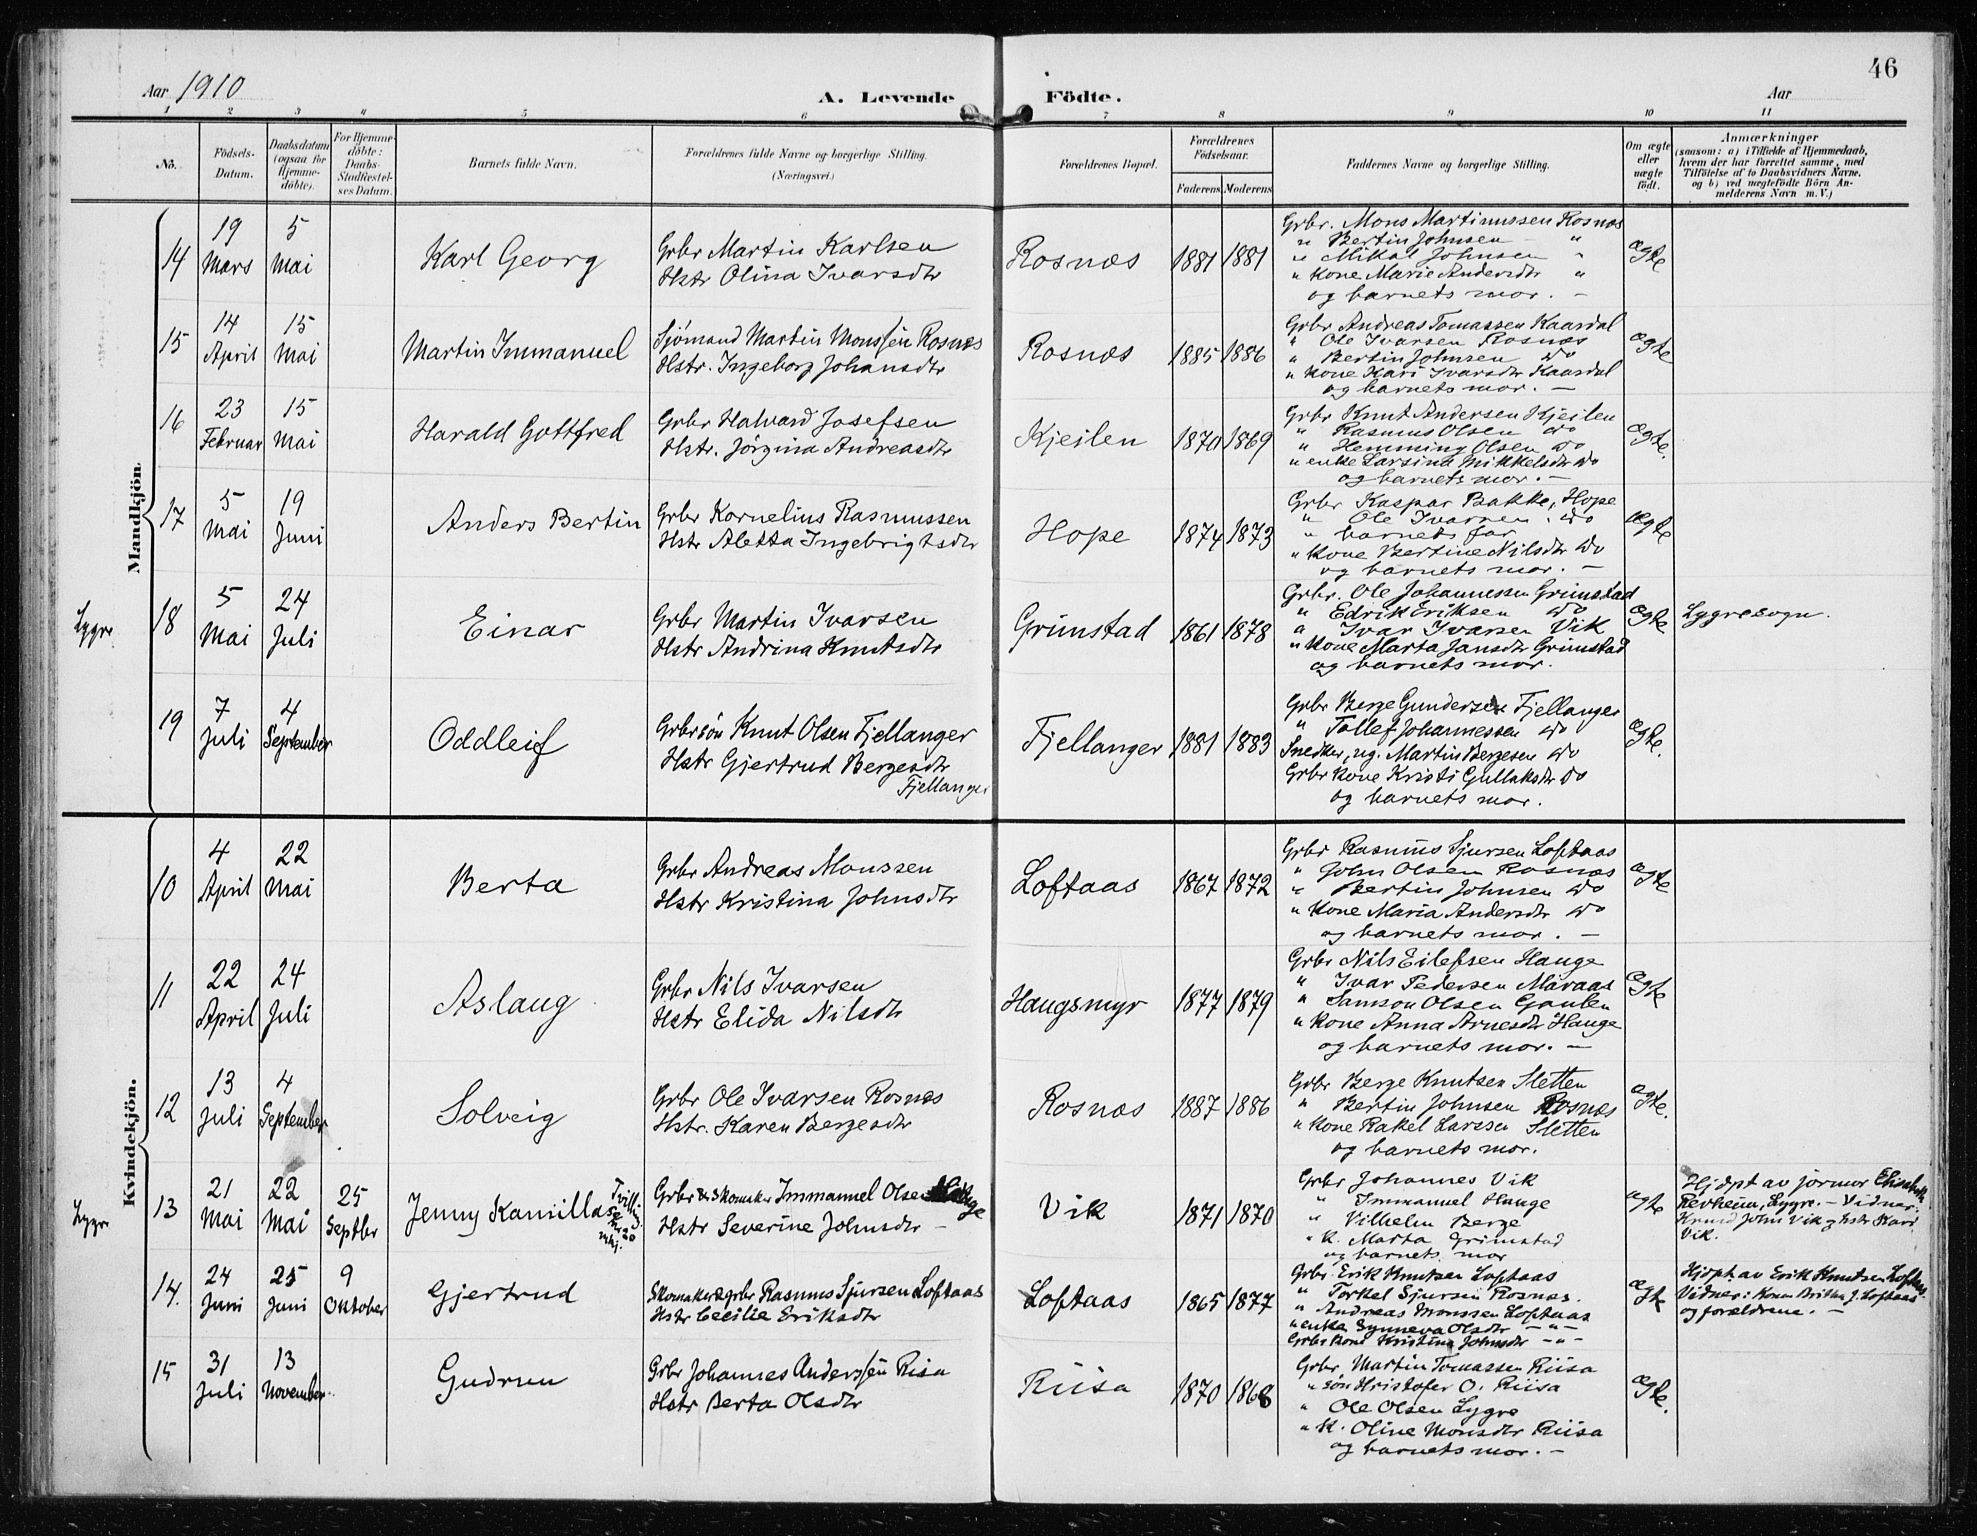 46
Aar 1910
A. Levende Födte.
Aar
1 2 3 4 5 6 7 8 9 10 11
No.
Födsels-Datum.
Daabsdatum (ogsaa for Hjemmedöbte).
For Hjemmedöbte: Daabs-Stadfæstelses Datum.
Barnets fulde Navn.
Forældrenes fulde Navne og borgerlige Stilling.
(Næringsvei.)
Forældrenes Bopæl.
Forældrenes Födselsaar.
Faderens. Moderens.
Faddernes Navne og borgerlige Stilling.
Om ægte eller uægte födt.
Anmærkninger
(saasom: a) i Tilfælde af Hjemmedaab, hvem der har forrettet samme, med Tilföielse af to Daabsvidners Navne, og b) ved uægtefödte Börn Anmelderens Navn m. V.)
Mandkjön.
14
19 Mars
5 Mai
Karl Georg
Grbr Martin Karlsen
Hstr Olina Ivarsdtr
Rosnæs
1881 1881
Grbr. Mons Martinussen Rosnæs
" Bertin Johnsen "
" Mikal Johnsen "
" Kone Marie Andersdtr "
og barnets mor. –
ægte
15
14 April
15 Mai
Martin Immanuel
Sjömand Martin Monssen Rosnæs
Hstr. Ingeborg Johansdtr
Rosnæs
1885 1886
Grbr Andreas Tomassen Kaardal
" Ole Ivarsen Rosnæs
" Bertin Johnsen do
" Kone Kari Ivarsdtr Kaardal
og barnets mor. –
ægte
16
23 Februar
15 Mai
Harald Gottfred
Grbr Halvard Josefsen
Hstr. Jörgina Andreasdtr
Kjeilen
1870 1869
Grbr Knut Andersen Kjeilen
" Rasmus Olsen do
" Hemming Olsen do
" enke Larsina Mikkelsdtr do
og barnets mor. –
ægte.
17
5 Mai
19 Juni
Anders Bertin
Grbr Kornelius Rasmussen
Hstr Aletta Ingebrigtsdtr
Hope
1874 1873
Grbr Kaspar Bakke, Hope
" Ole Ivarsen. do
" barnets far
" Kone Bertine Nilsdtr do
og barnets mor. –
ægte
Lygre
18
5 Mai
24 Juli
Einar
Grbr Martin Ivarsen
Hstr Andrina Knutsdtr
Grimstad
1861 1878
Grbr. Ole Johannessen Grimstad
" Edrik Eriksen do
" Ivar Ivarsen Vik
" Kone Marta Jansdtr Grimstad
og barnets mor.
ægte
Lygresogn.
19
7 Juli
4 September
Oddleif
Grbrsön Knut Olsen Fjellanger
Hstr Gjertrud Bergesdtr
Fjellanger
Fjellanger
1881 1883
Grbr Berge Gundersen Fjellanger
" Tollef Johannessen do
Snedker, ug. Martin Bergesen do
Grbr kone Kristi Gullaksdtr do
og barnets mor.
ægte.
Kvindekjön.
10
4 April
22 Mai
Berta
Grbr Andreas Monssen
Hstr Kristina Johnsdtr
Loftaas
1867 1872
Grbr Rasmus Sjursen Loftaas
" John Olsen Rosnæs
" Bertin Johnsen do
" Kone Maria Andersdtr do
og barnets mor. –
ægte
11
22 April
24 Juli
Aslaug
Grbr Nils Ivarsen
Hstr Elida Nilsdtr
Haugsmyr
1877 1879
Grbr Nils Eilefsen Hauge
" Ivar Pedersen Måraas
" Samson Olsen Gaulen
" Kone Anna Arnesdtr Hauge
og barnets mor. –
ægte
12
13 Juli
4 September
Solveig
Grbr Ole Ivarsen Rosnæs
Hstr. Karen Bergesdtr
Rosnæs
1887 1886
Grbr Berge Knutsen Sletten
" Bertin Johnsen Rosnæs
" Kone Rakel Larssen Sletten
og barnets mor.
ægte.
Lygre
13
21 Mai
22 Mai
25 Septbr
Jenny Kamilla
Grbr & Skomaker Immanuel Olsen Hauge
Hstr Severine Johnsdtr –
Vik
1871 1870
Grbr Johannes Vik
" Immanuel Hauge
" Vilhelm Berge
" K. Marta Grimstad
og barnets mor
ægte
Hjdpt av jormor Elisabeth
Lygre. – Vidner:
John Vik og hstr Kari
Vik.
14.
24 Juni
25 Juni
9 Oktober
Gjertrud
Skomaker & grbr Rasmus Sjursen Loftaas
Hstr Cecilie Eriksdtr
Loftaas
1865 1877
Grbr. Erik Knutsen Loftaas
" Torkel Sjursen Rosnæs.
" Andreas Monssen Loftaas
" enke Synneva Olsdtr – " –
Grbr kone Kristina Johnsdtr – " –
ægte
Hjdpt av Erik Knutsen Loftaas
Vidner: Kone Britha J. Loftaas
og forældrene. –
15
31 Juli
13 November
Gudrun
Grbr Johannes Anderssen Riisa
Hstr Berta Olsdtr
Riisa
1870 1868
Grbr Martin Tomassen Riisa
" sön Kristofer O. Riisa
" Ole Olsen Lygre
" K. Oline Monsdtr Riisa
og barnets mor. –
ægte.